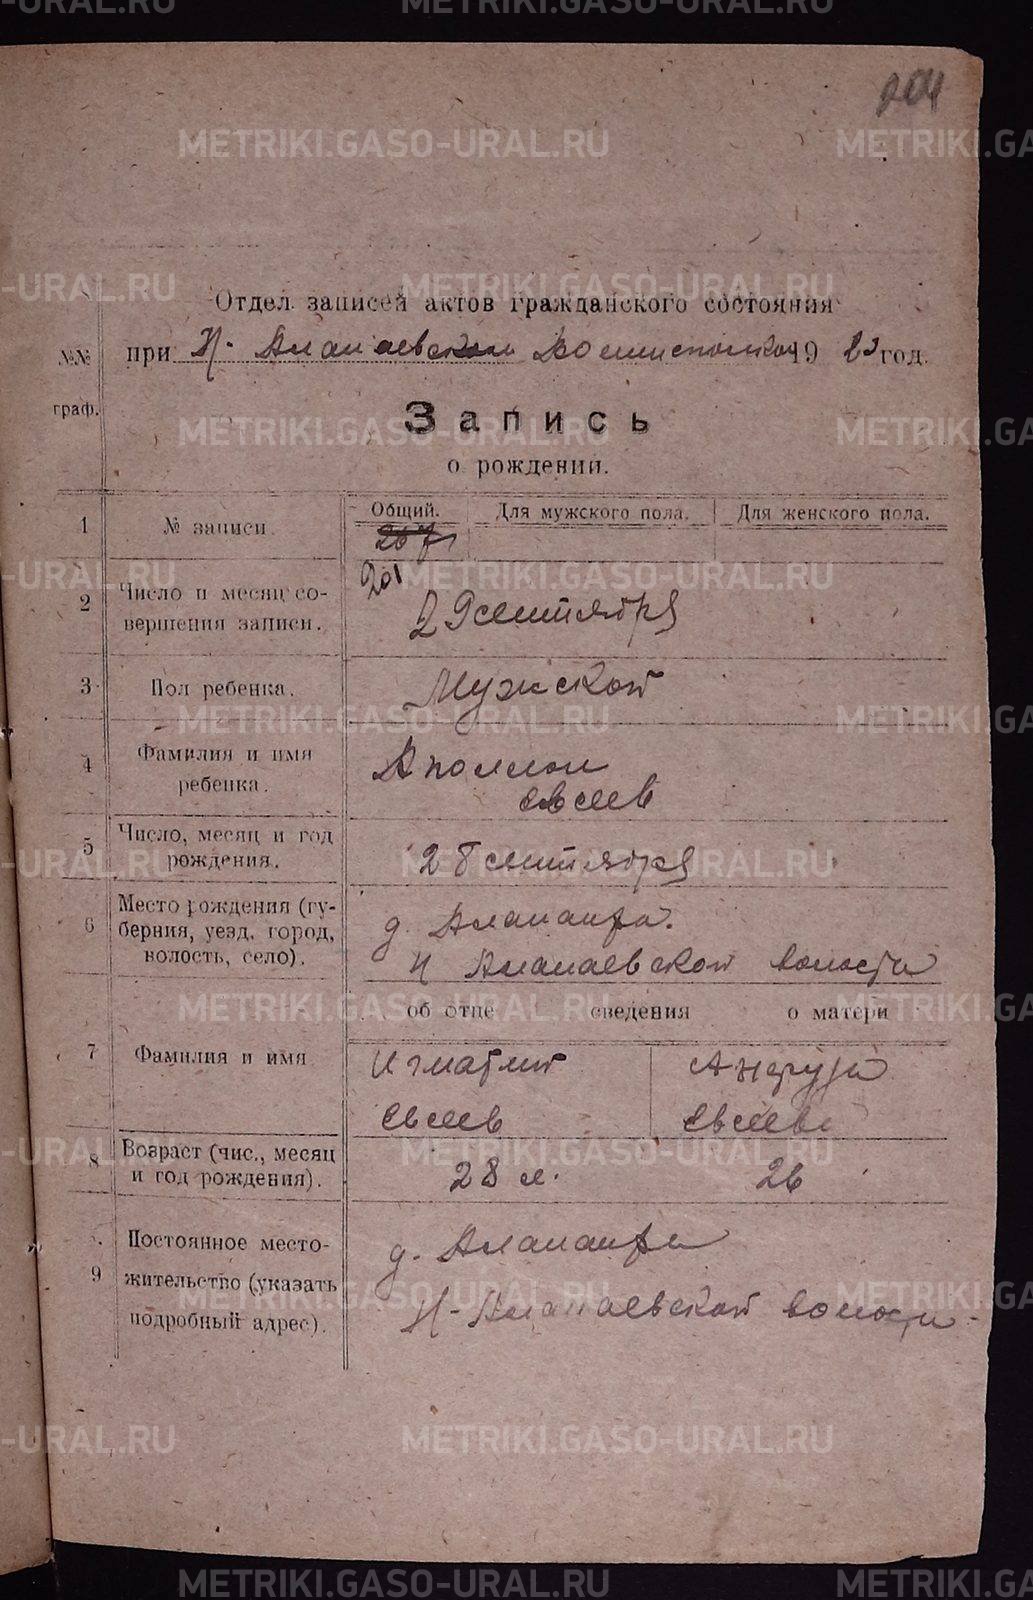 204
Отдел записей актов гражданского состояния
№№ граф.
при Н-Алапаевском Волисполкоме 1923 год.
Запись
о рождении.
1 № записи. Общий. Для мужского пола. Для женского пола.
267
201
2 Число и месяц со-
вершения записи.
29 сентября
3 Пол ребенка. Мужской
4 Фамилия и имя
ребенка.
Аполлон
Евсеев
5 Число, месяц и год
рождения.
28 сентября
6 Место рождения (гу-
берния, уезд, город,
волость, село).
д. Алапаиха.
Н Алапаевской волости
об отце сведения о матери
7 Фамилия и имя
Игнатий
Евсеев
Евсеева
8 Возраст (чис., месяц
и год рождения).
28 л. 26
9 Постоянное место-
жительство (указать
подробный адрес).
д. Алапаиха
Н-Алапаевской волости
METRIKI.GASO-URAL.RU